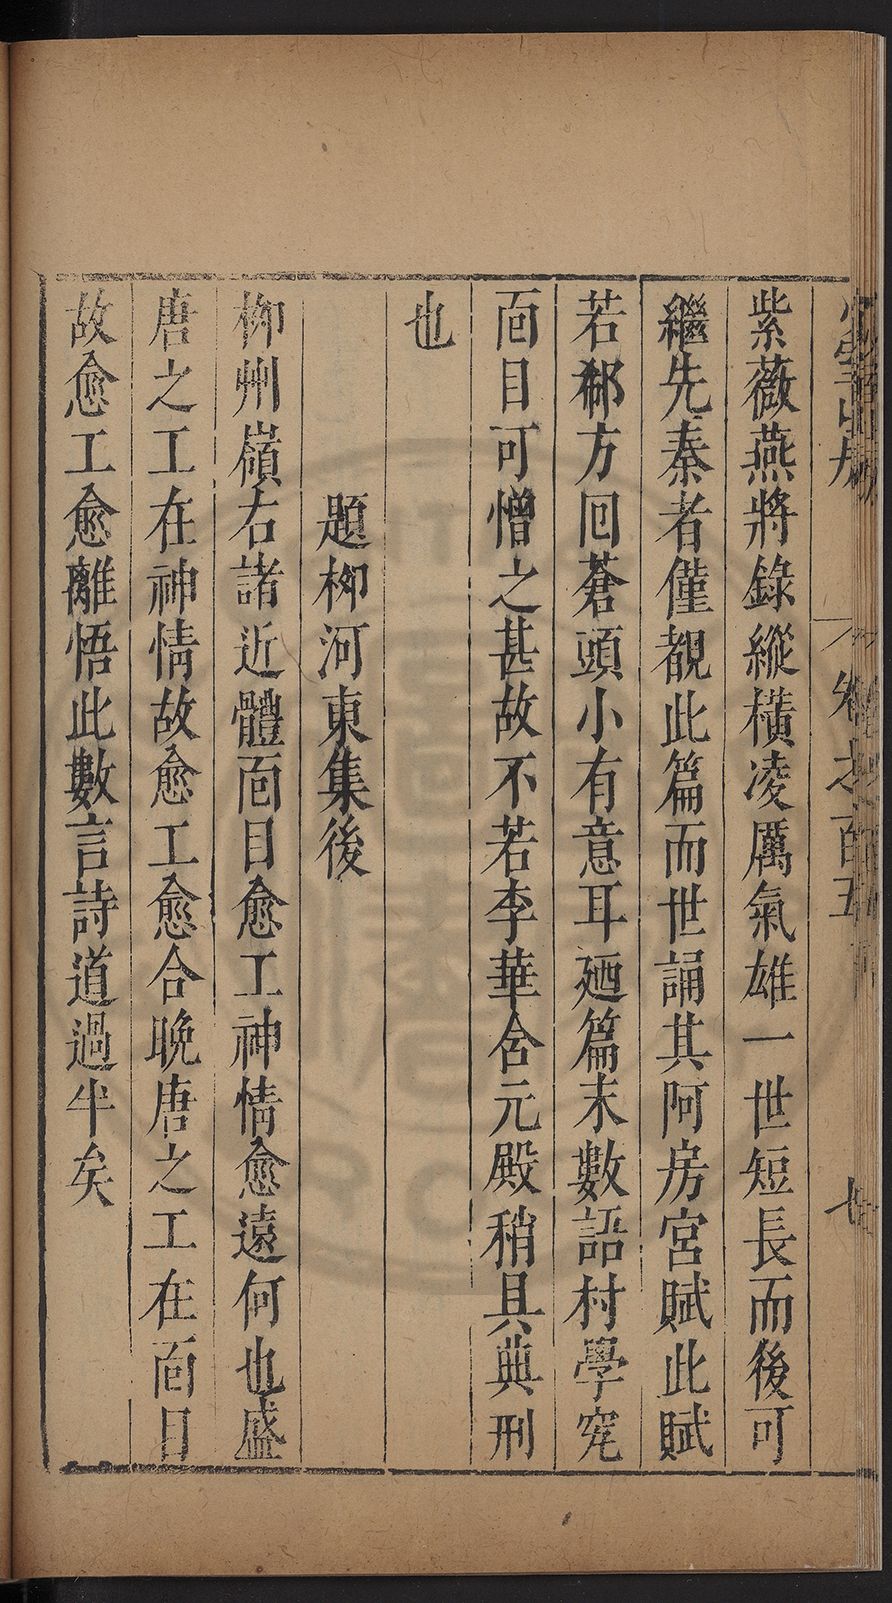 紫薇燕將錄縱橫凌厲氣雄一世短長而後可
繼先秦者僅覩此篇而世誦其阿房宮賦此賦
若郗方回蒼頭小有意耳廼篇末數語村學究
面目可憎之甚故不若李華含元殿稍具典刑
也
題柳河東集後
柳州嶺右諸近體面目愈工神情愈遠何也盛
唐之工在神情故愈工愈合晚唐之工在面目
故愈工愈離悟此數言詩道過半矣
卷之一百五